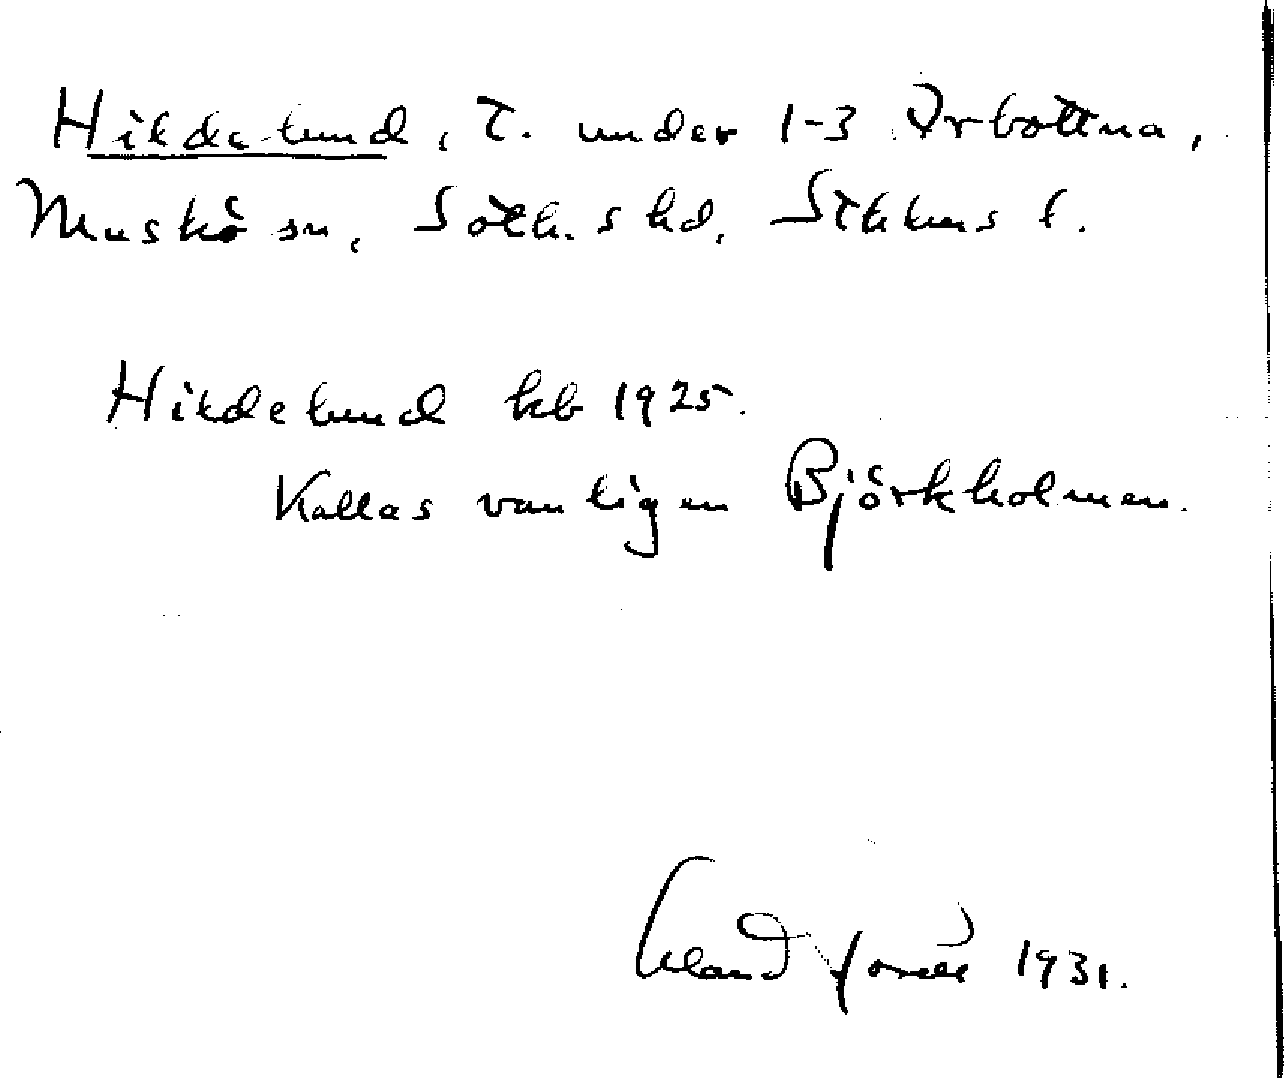 Hildelund, T. under 1-3 Arbottna,
Muskö sn, Soth.s hd, Sthlms l.
Hildelund kb 1925.
Kallas vanligen Björkholmen.
Erland 1931.